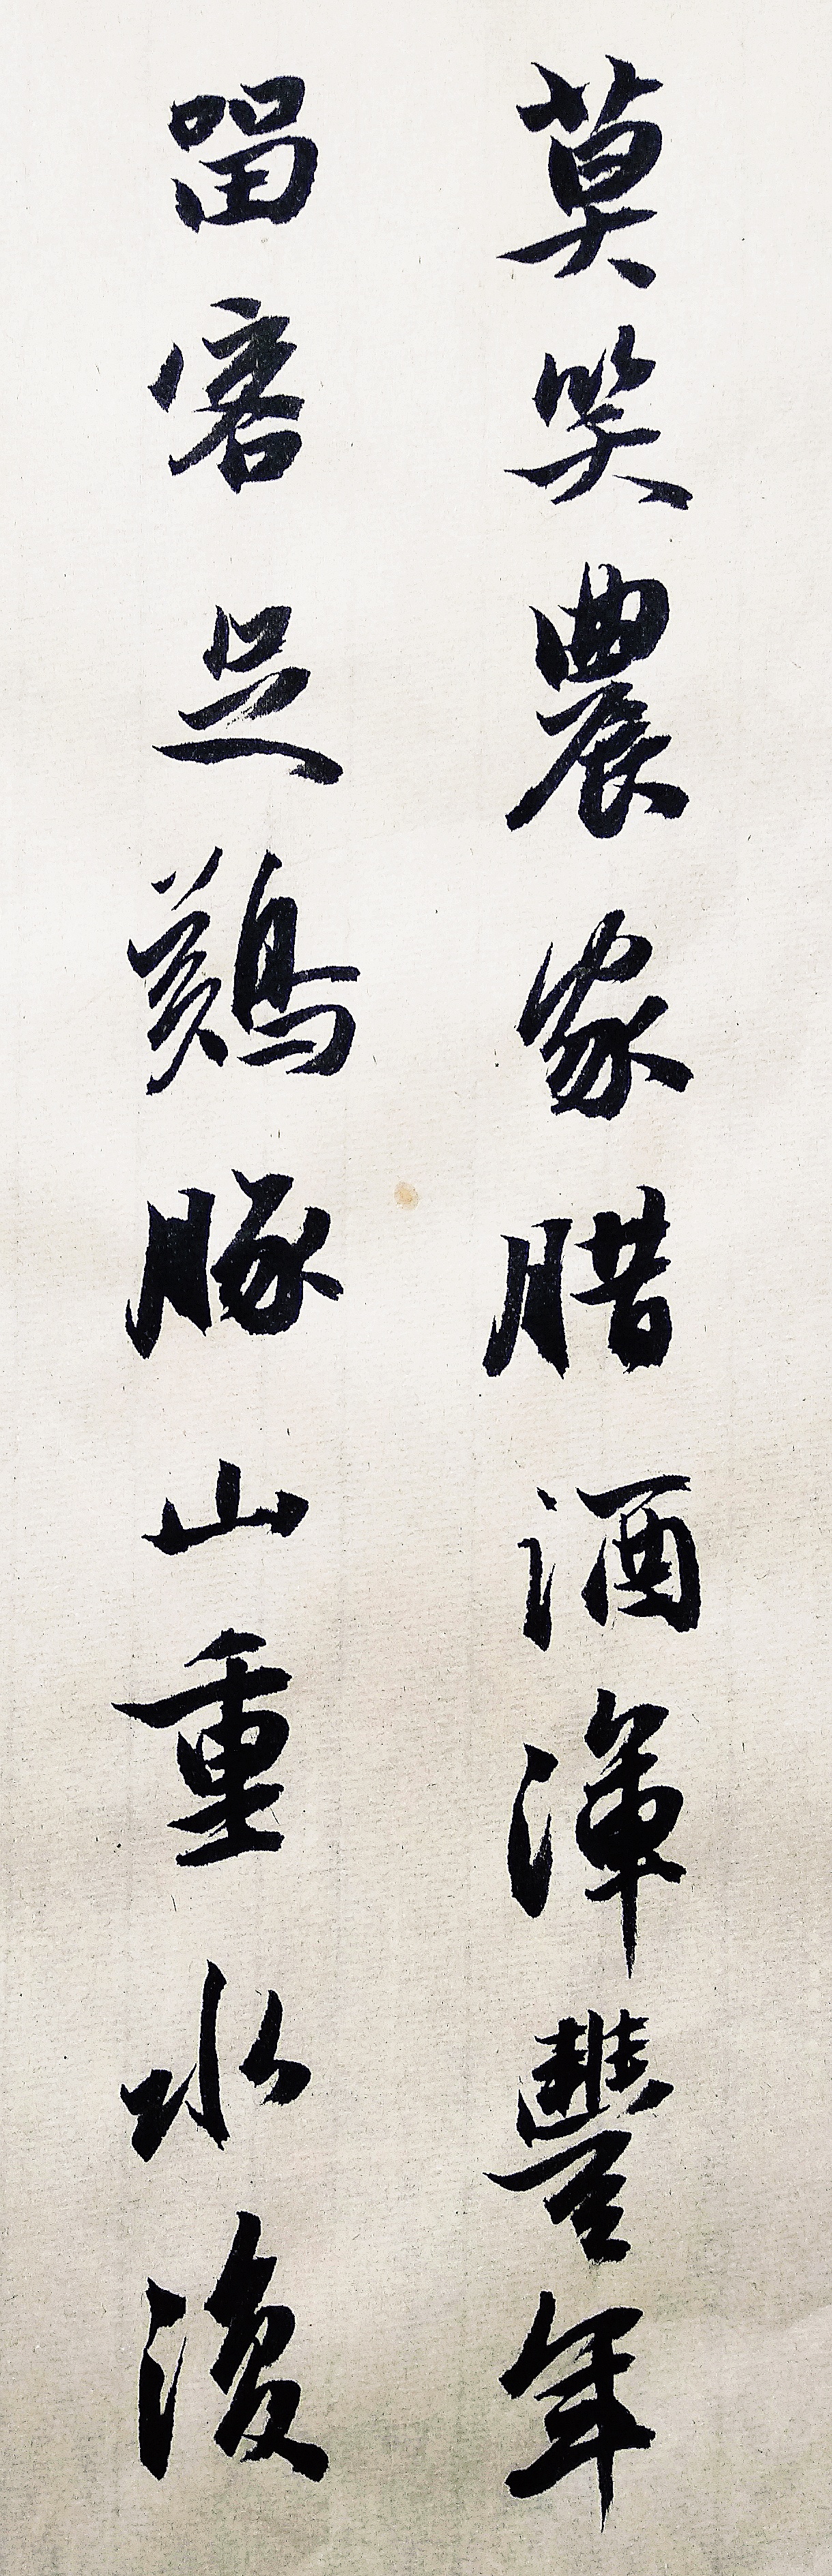 莫笑農家腊酒渾豐年
留客足鷄豚山重水復